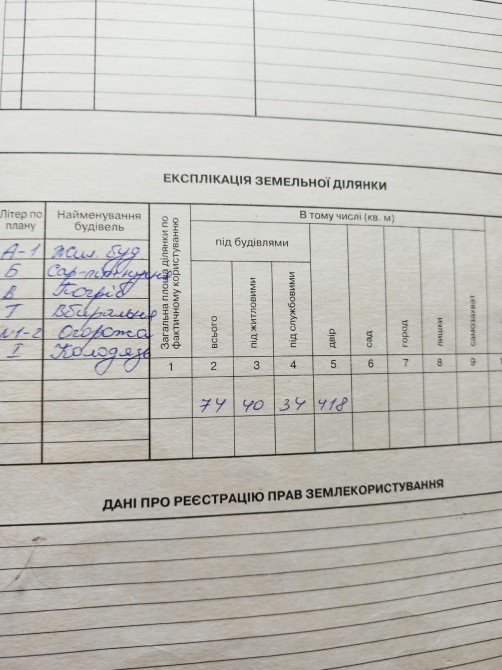 ЕКСПЛІКАЦІЯ ЗЕМЕЛЬНОЇ ДІЛЯНКИ
Літер по плану
Найменування будівель
Загальна площа ділянки по фактичному користуванню
В тому числі (кв. м)
під будівлями
всього
під житловими
під службовими
двір
сад
город
лишки
самозахват
1 2 3 4 5 6 7 8 9
А-1 Жил. буд.
Б
В Погріб
Г Вбиральня
№1-2 Огорожа
I Колодязь
74 40 34 418
ДАНІ ПРО РЕЄСТРАЦІЮ ПРАВ ЗЕМЛЕКОРИСТУВАННЯ